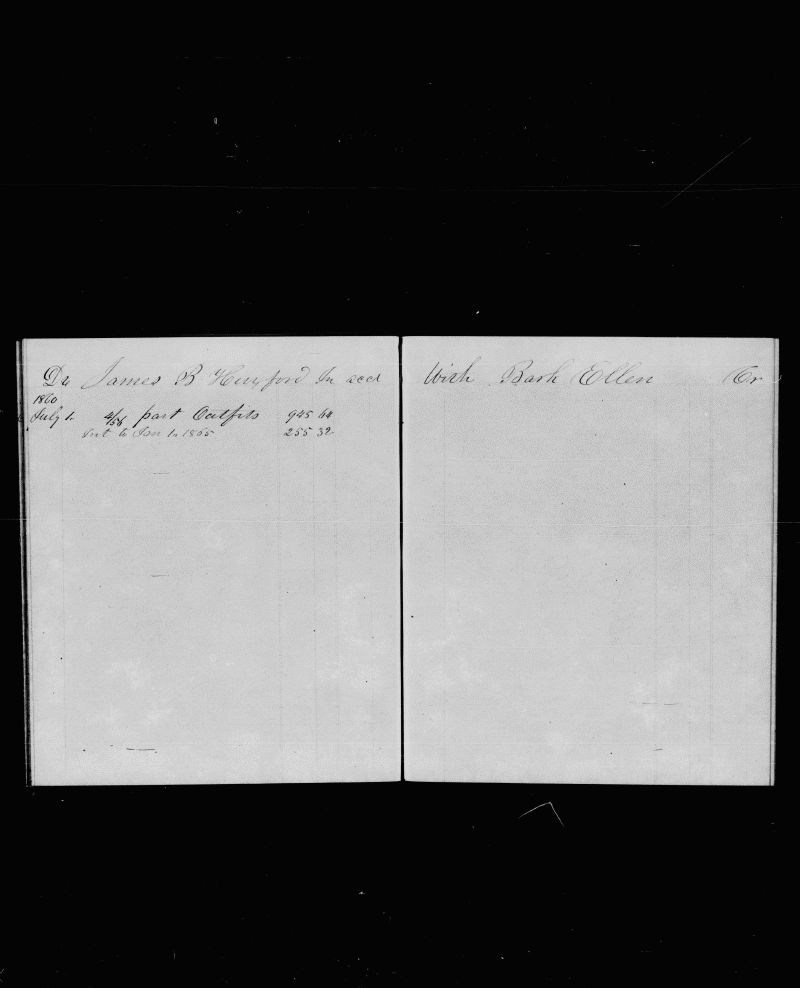 Dr James B Huxford In acct With Bark Ellen Cr
1860
July 1. 4/56 part Outfits 945 64
Int to Jan 1. 1865 255 32